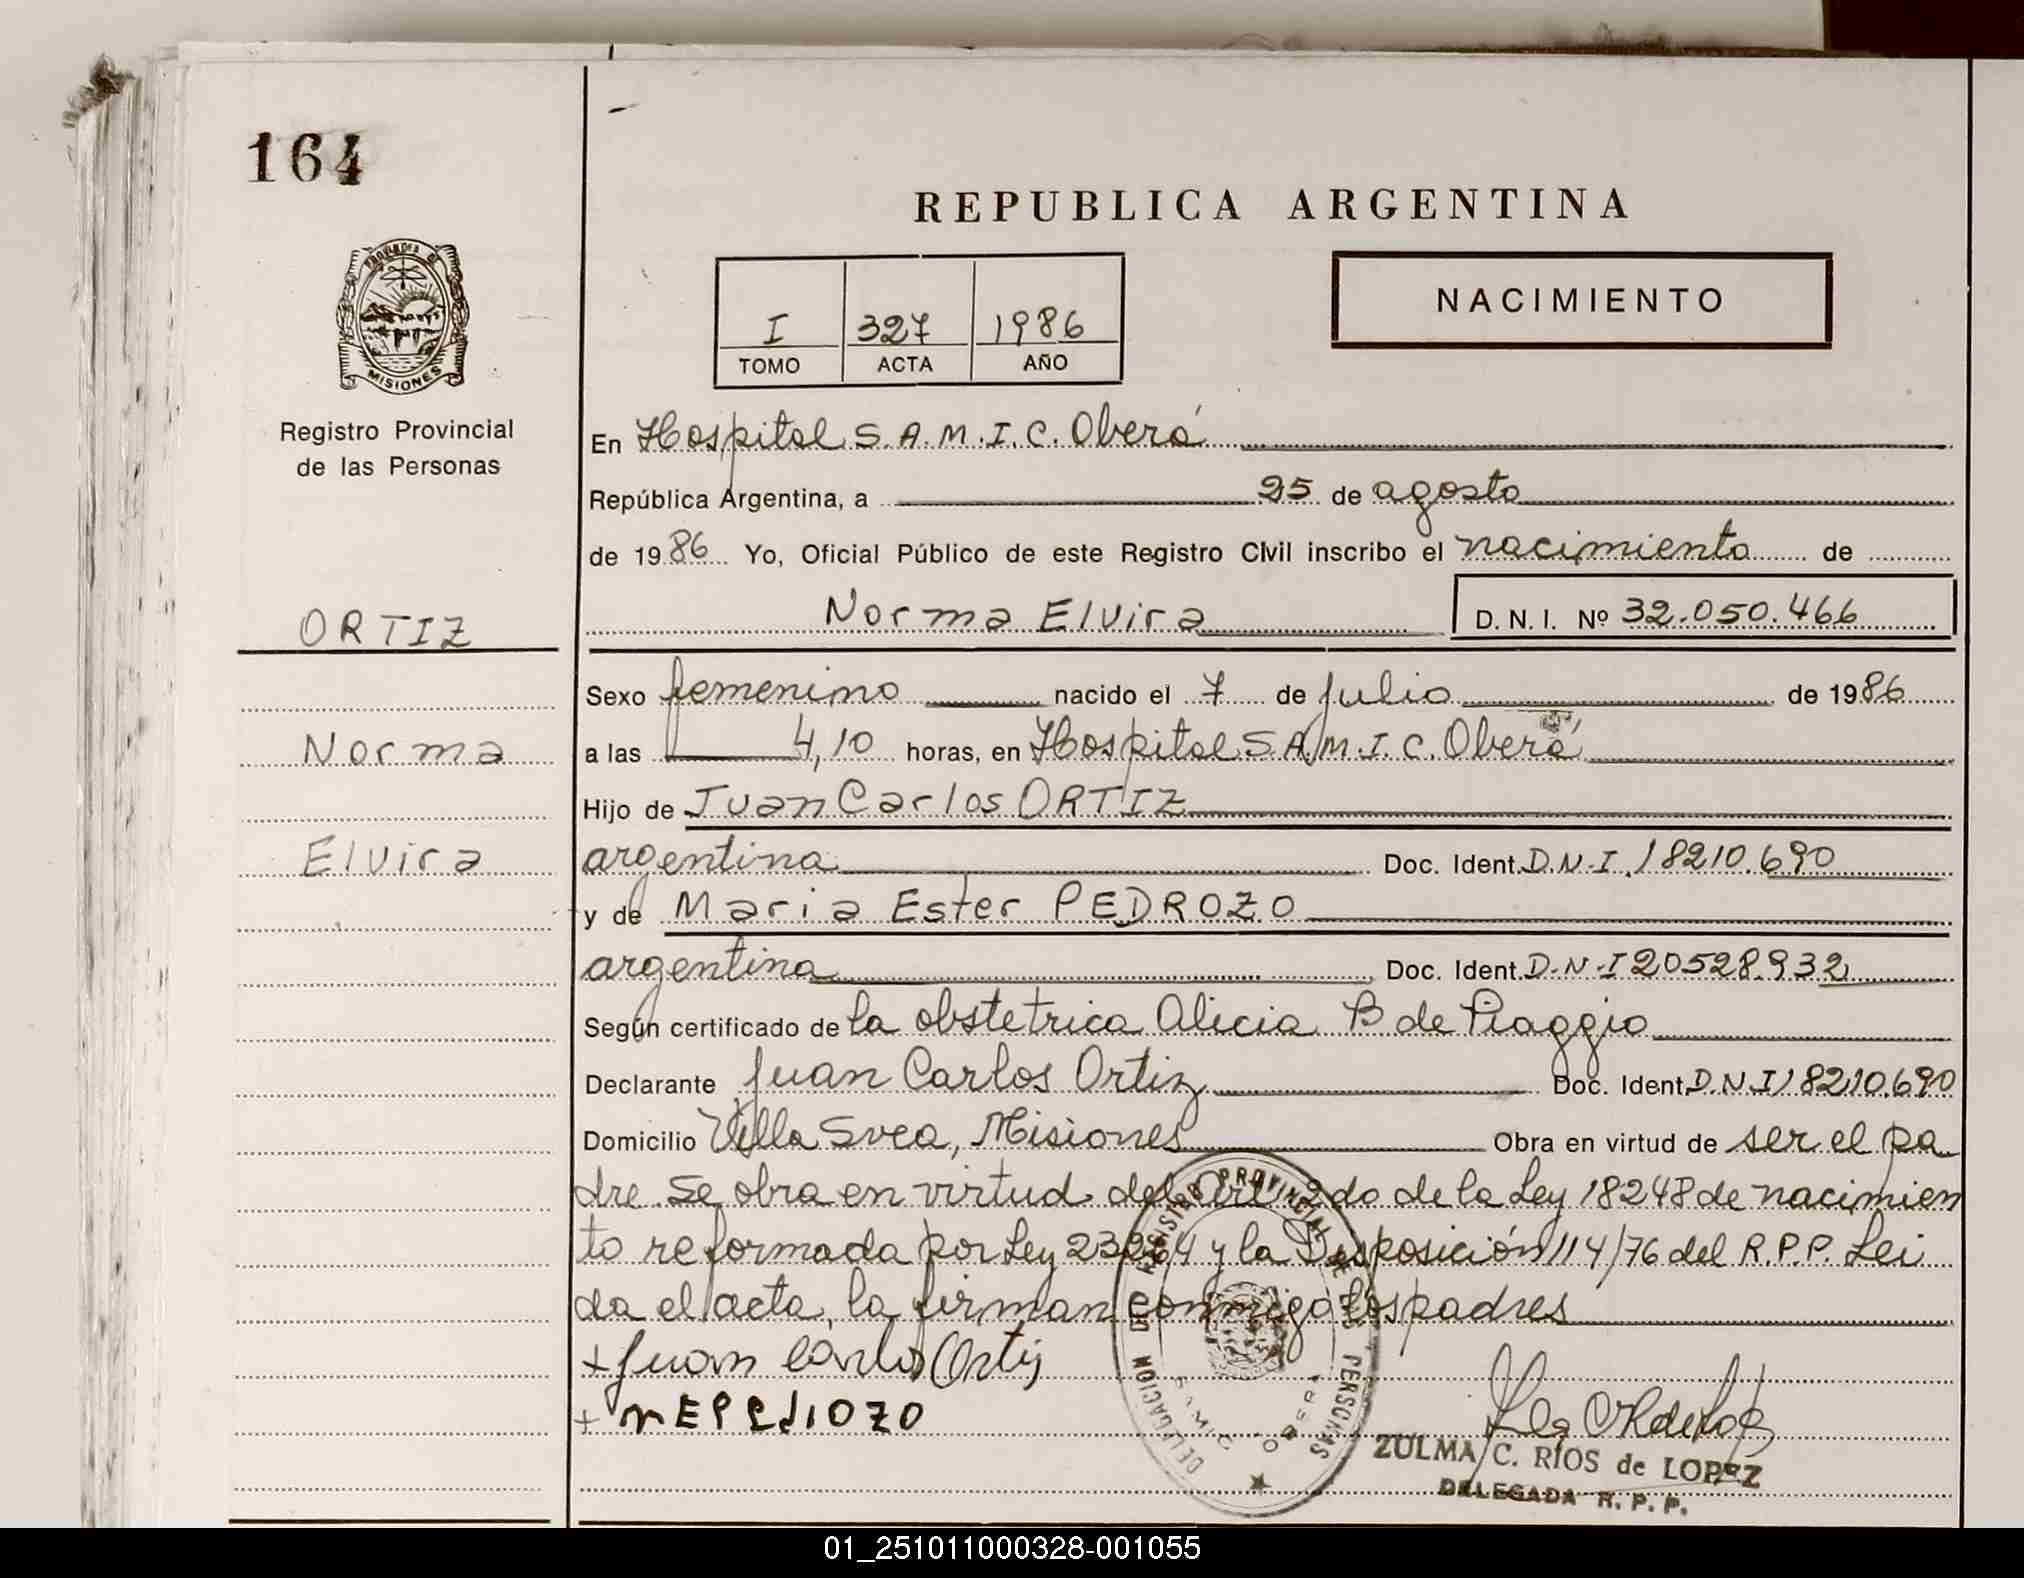 164
REPUBLICA ARGENTINA
PROVINCIA DE
MISIONES
Registro Provincial
de las Personas
I 327 1986
TOMO ACTA AÑO
NACIMIENTO
En Hospital S.A.M.I.C. Oberá
República Argentina, a 25 de agosto
de 1986 Yo, Oficial Público de este Registro Civil inscribo el nacimiento de
ORTIZ
Norma Elvira D. N. I. Nº 32.050.466
Sexo femenino nacido el 7 de julio de 1986
Norma
a las 4,10 horas, en Hospital S.A.M.I.C. Oberá
Hijo de Juan Carlos ORTIZ
Elvira
argentina Doc. Ident. D.N.I. 18210.690
y de Maria Ester PEDROZO
argentina Doc. Ident. D.N.I 20528.932
Según certificado de la obstetrica Alicia B de Piaggio
Declarante Juan Carlos Ortiz Doc. Ident. D.N.I 18210.690
Domicilio Villa Svea, Misiones Obra en virtud de ser el pa
dre. Se obra en virtud del Art. 2do de la Ley 18248 de nacimien
to reformada por Ley 23264 y la Disposición 114/76 del R.P.P. Lei
da el acta, la firman conmigo los padres
+ Juan Carlos Ortiz
+
REGISTRO PROVINCIAL DE LAS PERSONAS
DELEGACION
SAMIC OBERA
ZULMA C. RIOS de LOPEZ
DELEGADA R. P. P.
01_251011000328-001055